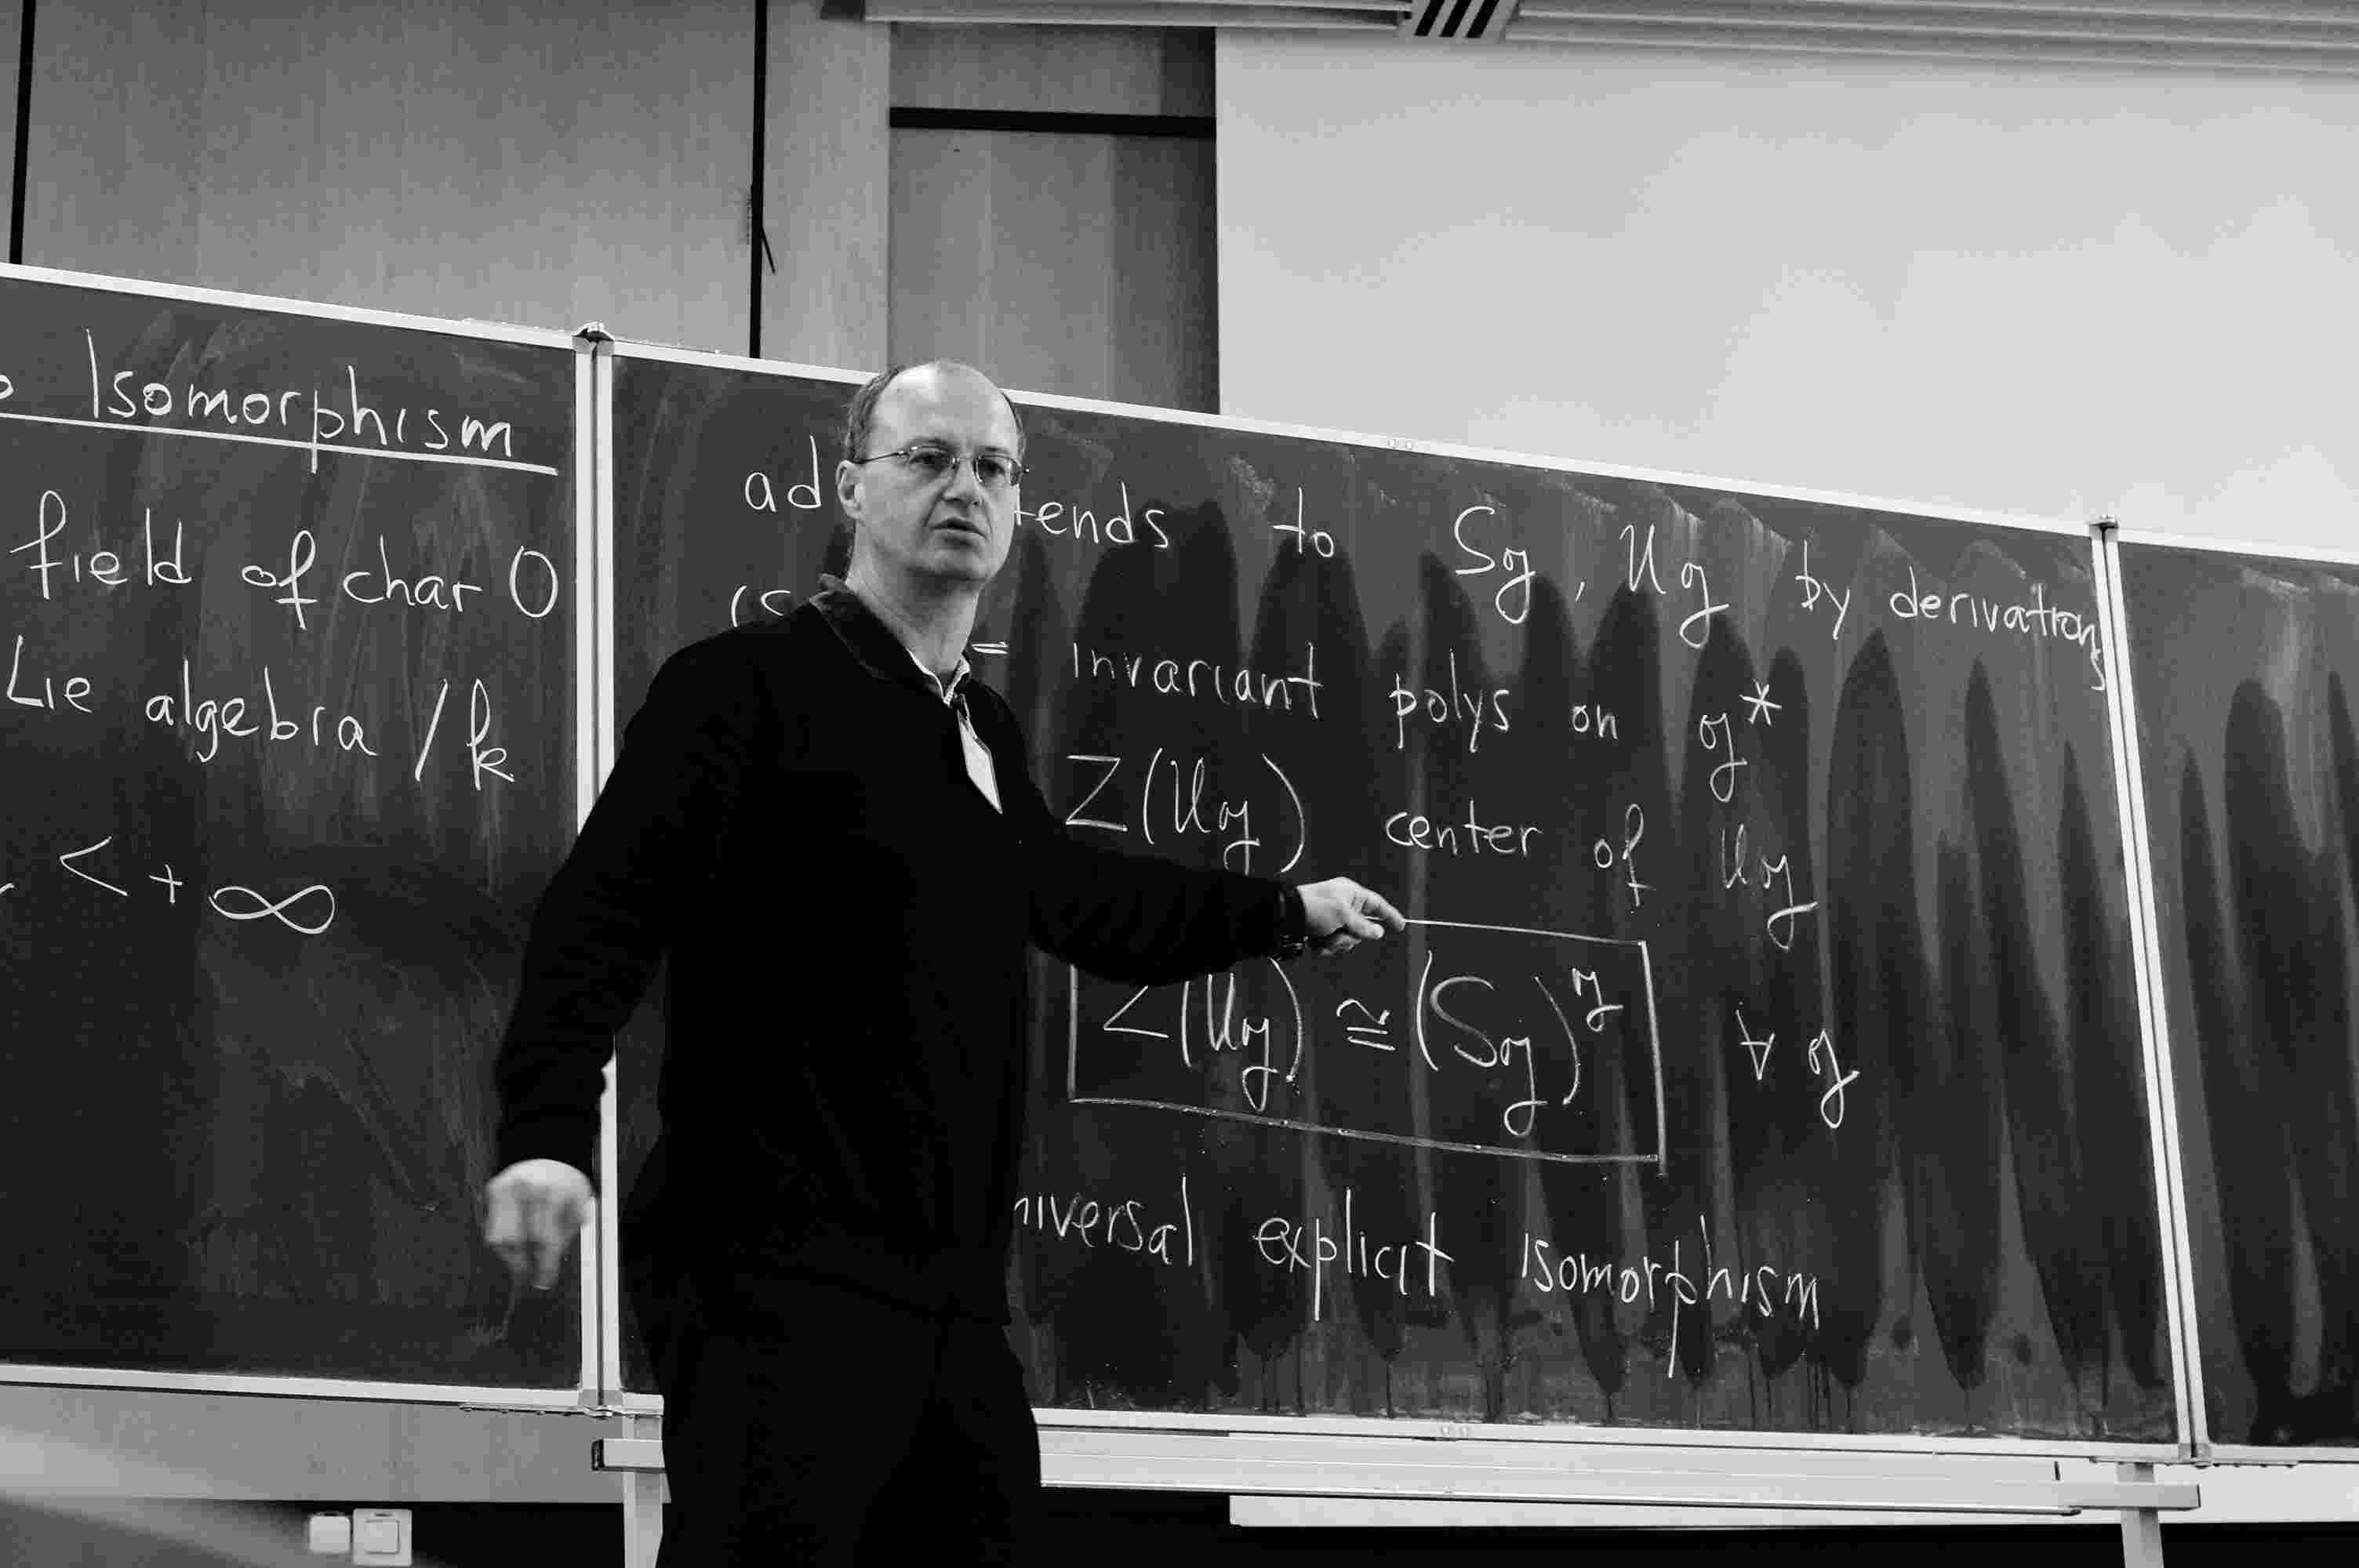 Isomorphism
field of char 0
Lie algebra / k
< + ∞
ad tends to S𝔤, U𝔤 by derivations
= invariant polys on 𝔤*
Z(U𝔤) center of U𝔤
Z(U𝔤) ≅ (S𝔤)^𝔤 ∀ 𝔤
niversal explicit isomorphism